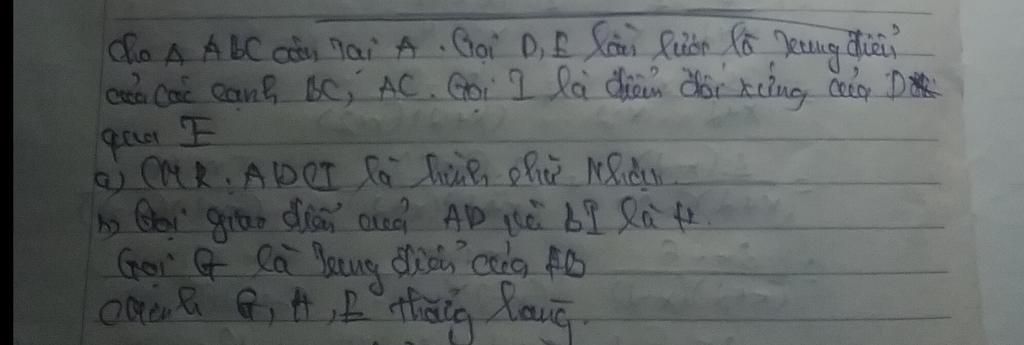 Cho Δ ABC cân tại A. Gọi D, E lần lượt là trung điểm
của các cạnh BC, AC. Gọi I là điểm đối xứng của D
qua E
a) CMR. ADCI là hình chữ Nhật
b) Gọi giao điểm của AD và BI là H.
Gọi G là trung điểm của AB
CMinh G, H, E thẳng hàng.